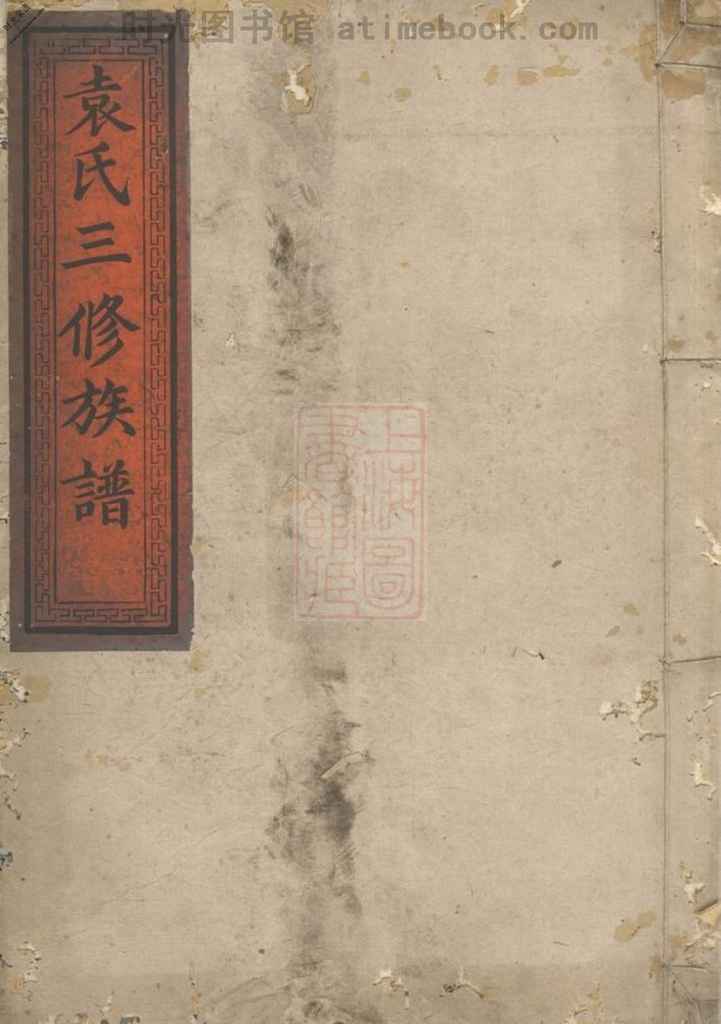 时光图书馆 atimebook.com
袁氏三修族譜